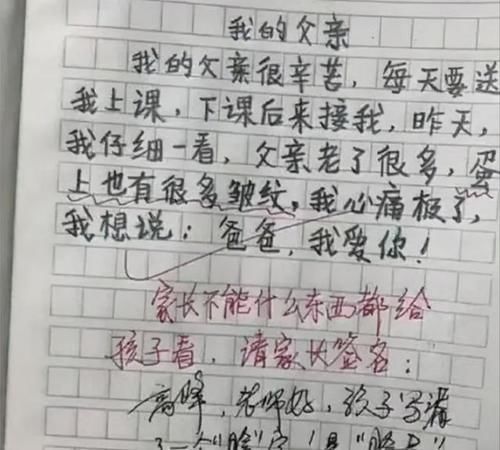 我的父亲
我的父亲很辛苦，每天要送
我上课，下课后来接我，昨天，
我仔细一看，父亲老了很多，蛋
上也有很多皱纹，我心痛极了，
我想说：爸爸，我爱你！
家长不能什么东西都给
孩子看，请家长签名：
高峰，老师好，孩子写错
了一个“脸”字！是“脸上”